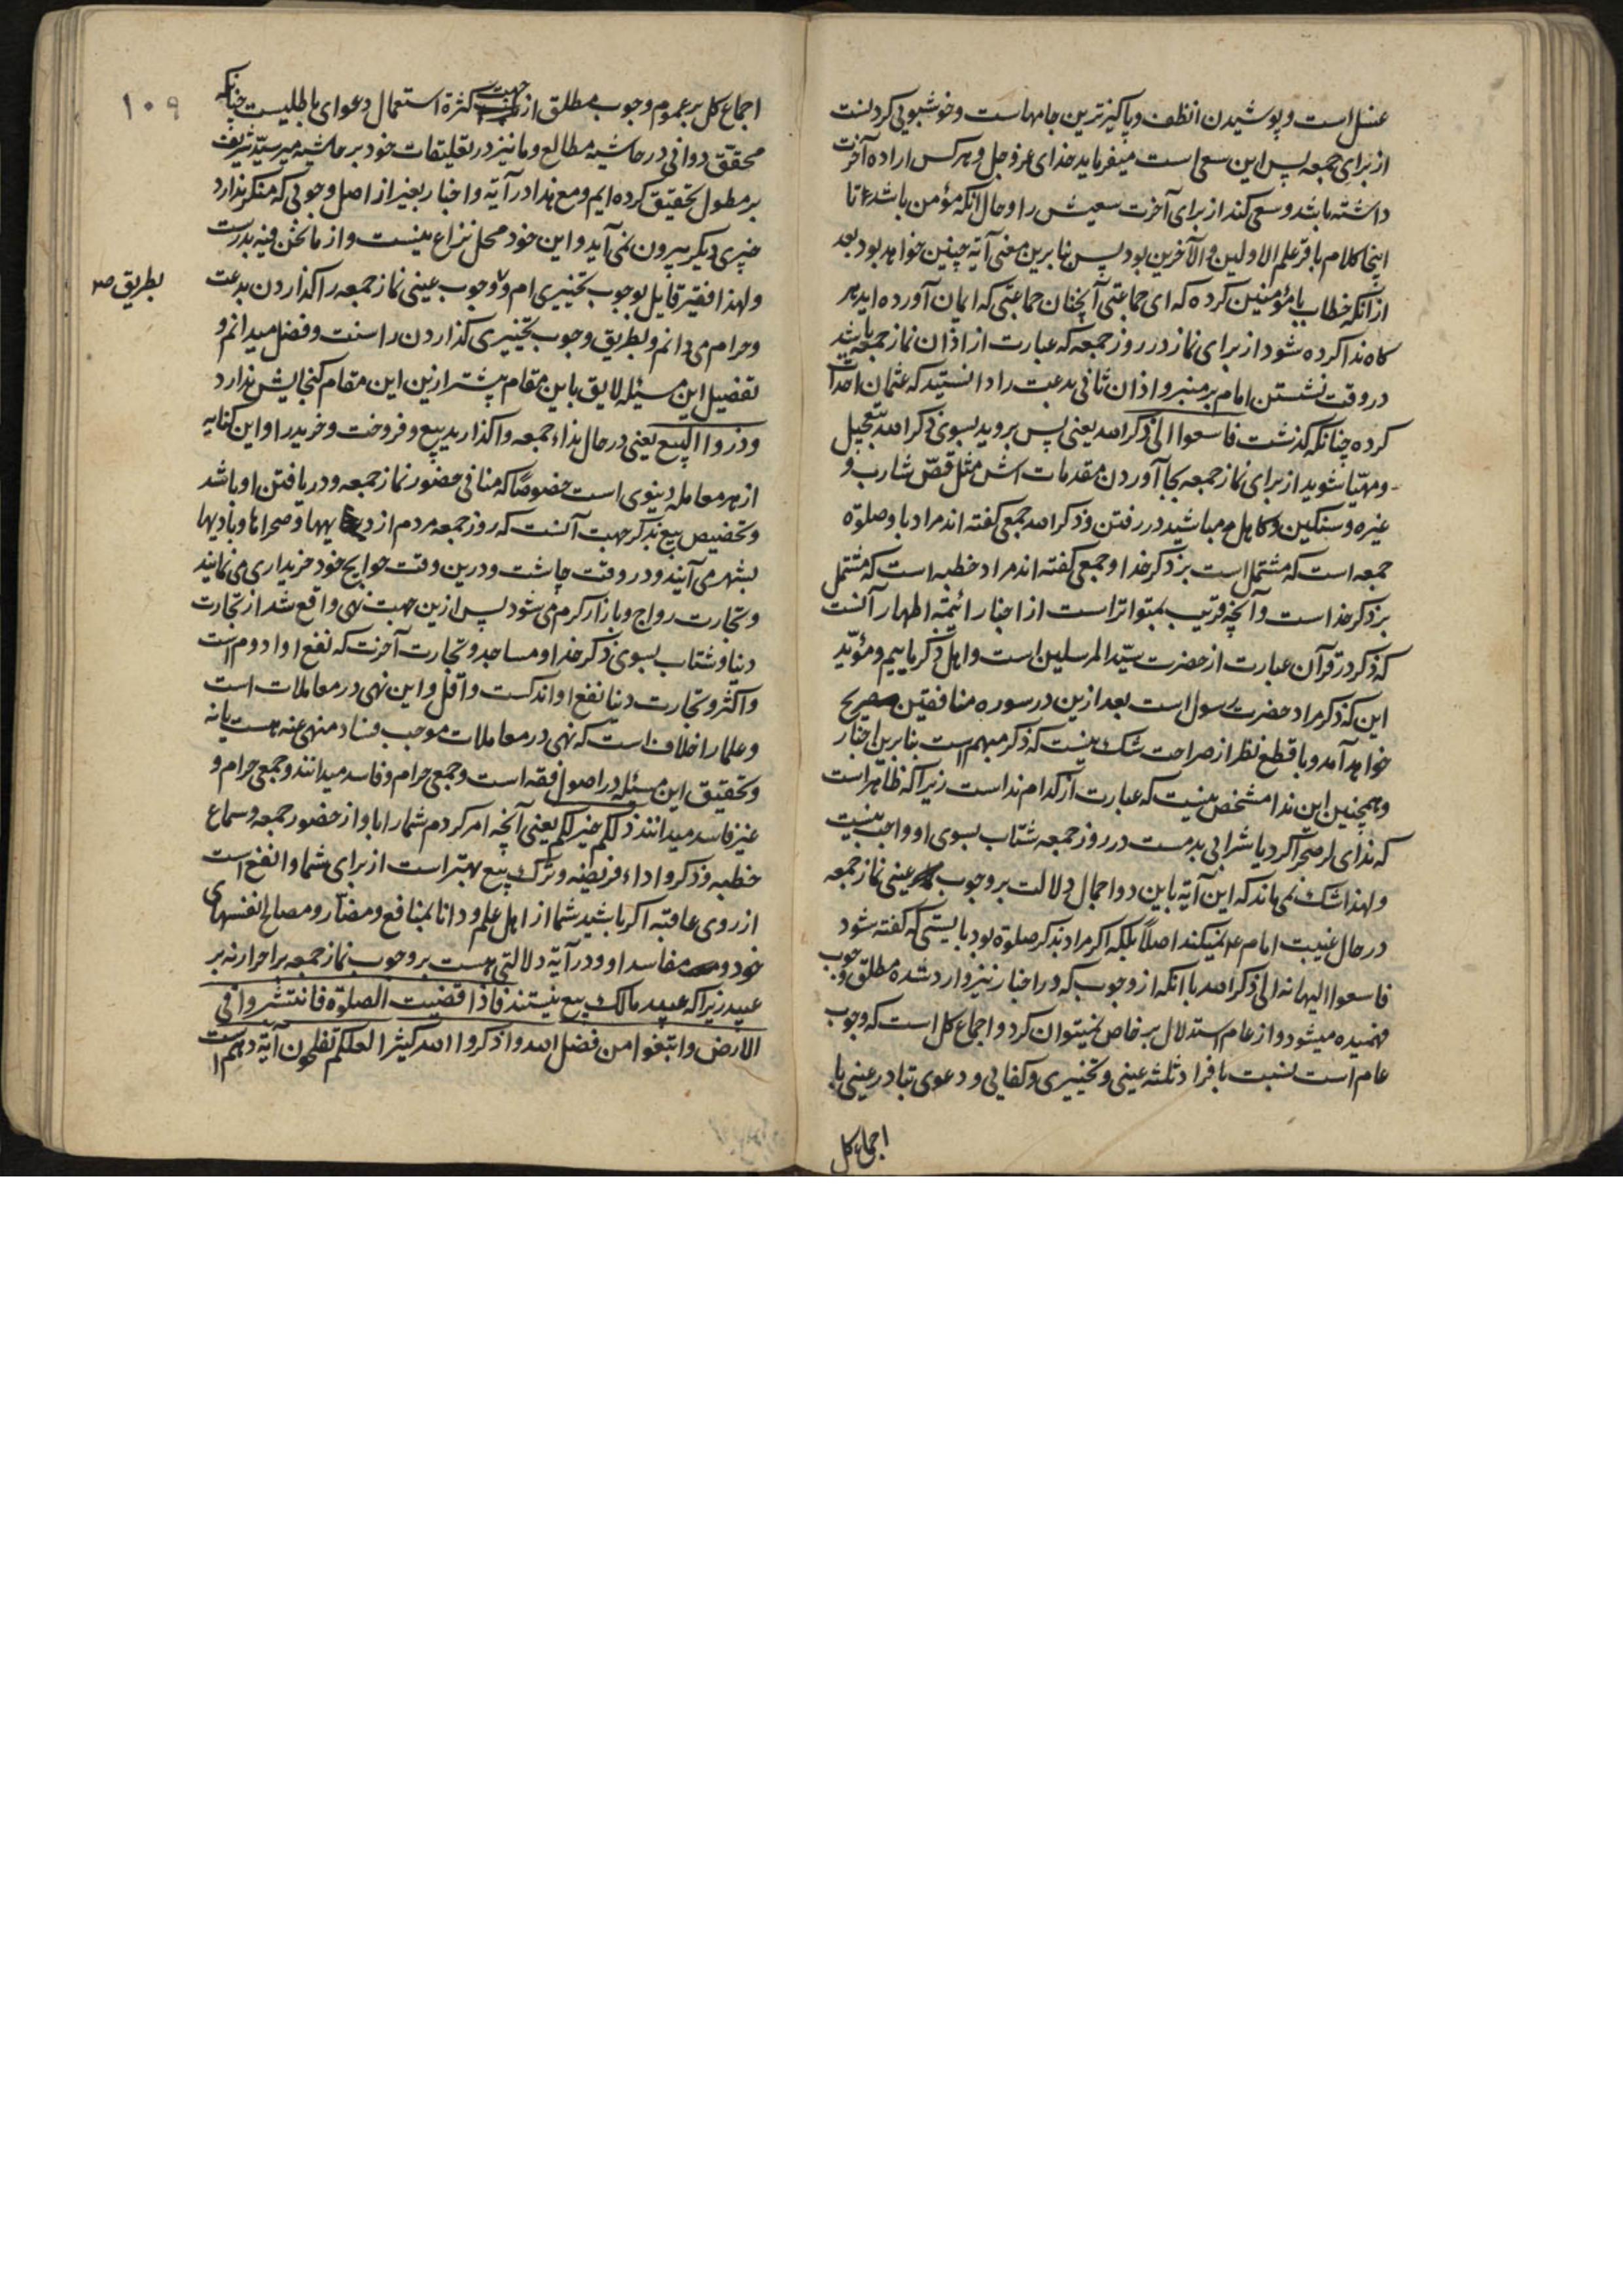 غسل است و پوشیدن انظف و پاکیزترین جامهاست و خوشبویی کردنست
از برای جمعه پس این سعی است میفرماید خدای عز و جل و هر کس اراده آخرت
داشته باشد و سعی کند از برای آخرت سعیش را و حال آنکه مؤمن باشد تا
اینجا کلام باقر علم الاولین و الآخرین بود پس بنا برین معنی آیه چنین خواهد بود بعد
از آنکه خطاب با مؤمنین کرده که ای جماعتی آنچنان جماعتی که ایمان آورده اید هر
کاه ندا کرده شود از برای نماز در روز جمعه که عبارت از اذان نماز جمعه باشد
در وقت نشستن امام بر منبر و اذان ثانی بدعت را دانستید که عثمان احداث
کرده چنانکه کذشت فاسعوا الی ذکر الله یعنی پس بروید بسوی ذکر الله بتعجیل
و مهیّا شوید از برای نماز جمعه بجا آوردن مقدمات اش مثل قصّ شارب و
غیره و سنکین و کاهل مباشید در رفتن و ذکر الله جمعی کفته اند مراد با و صلوة
جمعه است که مشتمل است بر ذکر خدا و جمعی کفته اند مراد خطبه است که مشتمل
بر ذکر خداست و آنچه قریب بتواتر است از اخبار ائیمّه اطهار آنست
که ذکر در قرآن عبارت از حضرت سیّد المرسلین است و اهل ذکر ماییم و مؤیّد
این که ذکر مراد حضرت رسول است بعد ازین در سوره منافقین صریح
خواهد آمد و با قطع نظر از صراحت شک نیست که ذکر مبهم است بنا برین اخبار
و همچنین این ندا مشخص نیست که عبارت از کدام نداست زیرا که ظاهر است
که ندای لر صحرا کرد یا شرابی بدمست در روز جمعه شتاب بسوی او واجب نیست
و لهذا شک نمی ماند که این آیه باین دو اجمال دلالت بر وجوب عینی نماز جمعه
در حال غیبت امام ع نمیکند اصلاً بلکه اکر مراد بذکر صلوة بود بایستی که کفته شود
فاسعوا الیها نه الی ذکر الله با آنکه از وجوب که در اخبار نیز وارد شده مطلق وجوب
فهمیده میشود و از عام استدلال بر خاص نمیتوان کرد و اجماع کل است که وجوب
عام است نسبت بافراد ثلثه عینی و تخییری و کفایی و دعوی تبادر عینی با
اجماع کل
۱۰۹
اجماع کل بر عموم وجوب مطلق از جهت کثرة استعمال دعوای باطلیست چنانکه
محقّق دوانی در حاشیه مطالع و ما نیز در تعلیقات خود بر حاشیه میر سیّد شریف
بر مطول تحقیق کرده ایم و مع هذا در آیه و اخبار بغیر از اصل وجوبی که منکر ندارد
چیزی دیکر بیرون نمی آید و این خود محل نزاع نیست و از ما نحن فیه بدرست
و لهذا فقیر قایل بوجوب تخییری ام و وجوب عینی نماز جمعه را کذاردن بدعت
بطریق صح
و حرام می دانم و بطریق وجوب تخییری کذاردن را سنت و فضل میدانم و
تفصیل این مسئله لایق باین مقام بیشتر ازین این مقام کنجایش ندارد
و ذروا البیع یعنی در حال نداء جمعه واکذارید بیع و فروخت و خرید را و این کنایه
از هر معامله دنیوی است خصوصًا که منافی حضور نماز جمعه و دریافتن او باشد
و تخصیص بیع بذکر جهت آنست که روز جمعه مردم از دیهها و صحراها و بادیها
بشهر می آیند و در وقت چاشت و درین وقت حوایج خود خریداری می نمایند
و تجارت رواج و بازار کرم می شود پس ازین جهت نهی واقع شد از تجارت
دنیا و شتاب بسوی ذکر خدا و مساجد و تجارت آخرت که نفع او ادوم است
و اکثر و تجارت دنیا نفع او اندکست و اقل و این نهی در معاملات است
و علما را خلاف است که نهی در معاملات موجب فساد منهی عنه هست یا نه
و تحقیق این مسئله در اصول فقه است و جمعی حرام و فاسد میدانند و جمعی حرام و
غیر فاسد میدانند ذلکم خیر لکم یعنی آنچه امر کردم شما را باو از حضور جمعه و سماع
خطبه و ذکر و اداء فریضه و ترک بیع بهتر است از برای شما و انفع است
از روی عاقبه اکر باشید شما از اهل علم و دانا بمنافع و مضارّ و مصالح نفسهای
خود و مفاسد او و در آیه دلالتی هست بر وجوب نماز جمعه بر احرار نه بر
عبید زیرا که عبید مالک بیع نیستند فاذا قضیت الصلوة فانتشروا فی
الارض و ابتغوا من فضل الله و اذکروا الله کثیرا لعلکم تفلحون آیه دهم است